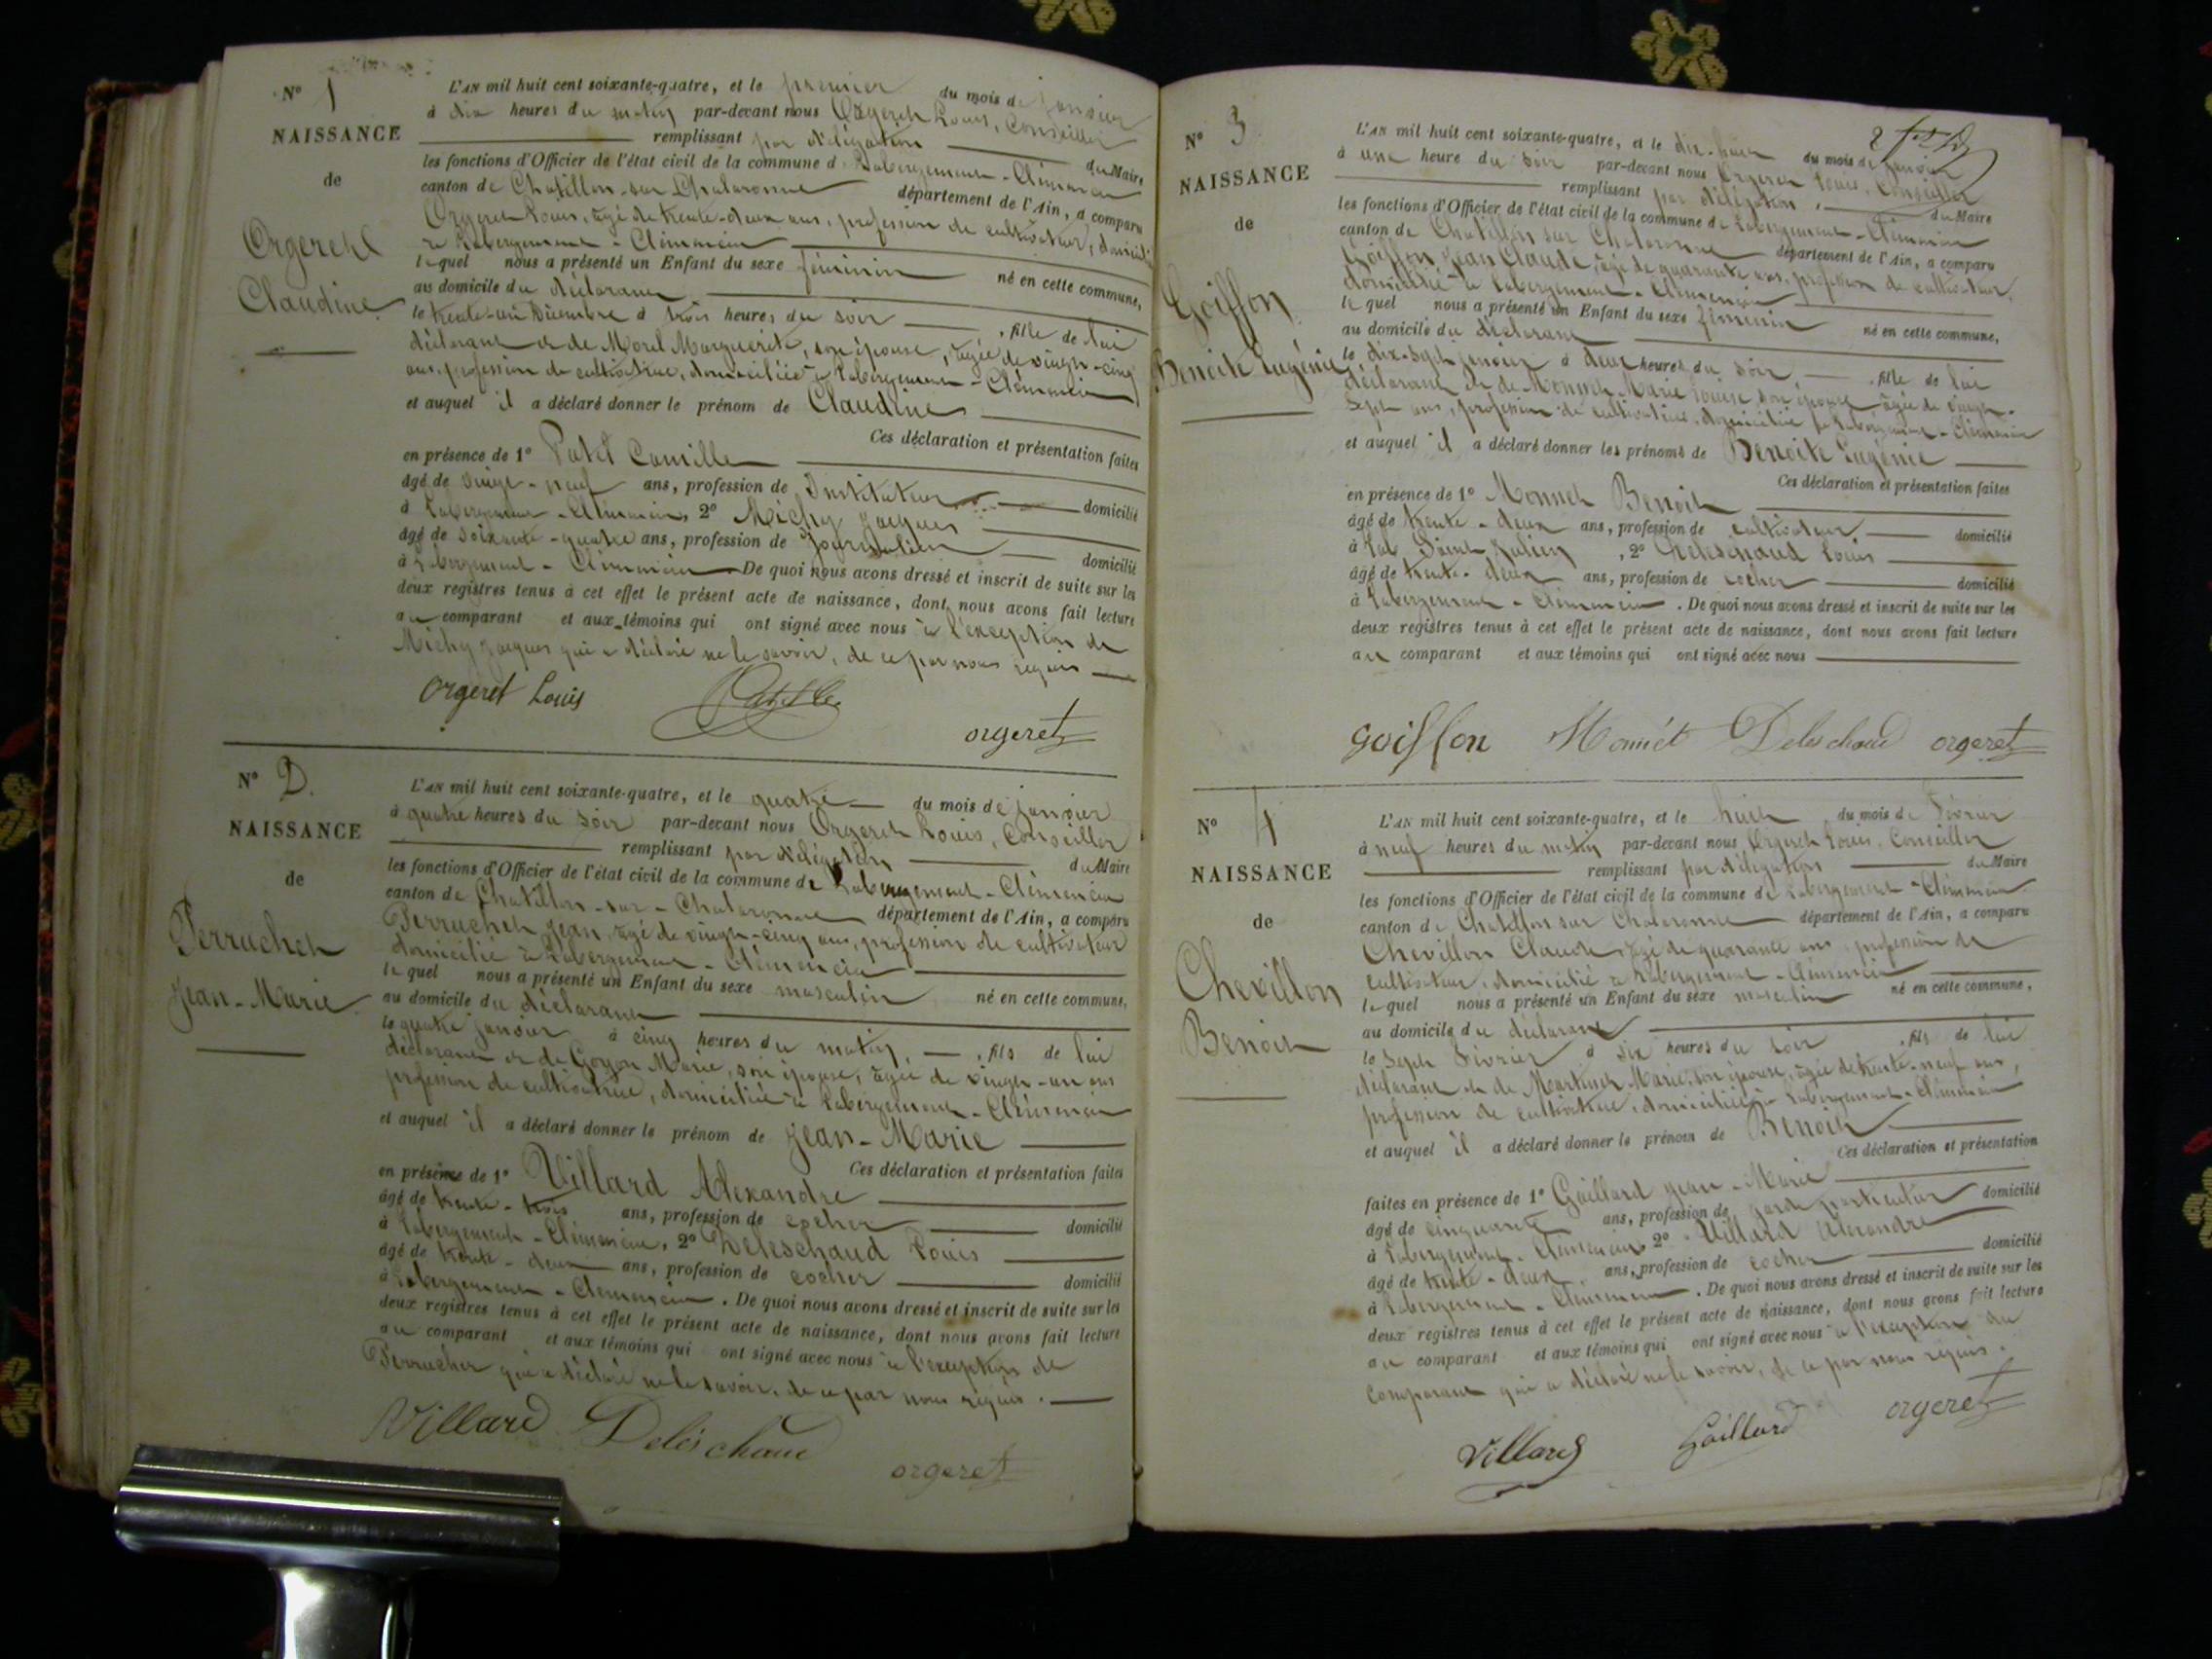 Nº 1
NAISSANCE
de
Orgeret
Claudine
L'AN mil huit cent soixante-quatre, et le premier du mois de janvier
à dix heures du matin par-devant nous Orgeret Louis, Conseiller
remplissant par délégation du Maire
les fonctions d'Officier de l'état civil de la commune de Labergement-Clémencia
canton de Chatillon-sur-Chalaronne département de l'Ain, a comparu
Orgeret Louis, âgé de trente-deux ans, profession de cultivateur, domicilié
à Labergement-Clémencia
lequel nous a présenté un Enfant du sexe féminin né en cette commune,
au domicile du déclarant
le trente-un Décembre à trois heures du soir, fille de lui
déclarant et de Morel Marguerite, son épouse, âgée de vingt-cinq
ans, profession de cultivatrice, domiciliée à Labergement-Clémencia
et auquel il a déclaré donner le prénom de Claudine
Ces déclaration et présentation faites
en présence de 1º Patet Camille
âgé de vingt-neuf ans, profession de Instituteur domicilié
à Labergement-Clémencia, 2º Michy Jacques
âgé de soixante-quatre ans, profession de Journalier domicilié
à Labergement-Clémencia De quoi nous avons dressé et inscrit de suite sur les
deux registres tenus à cet effet le présent acte de naissance, dont nous avons fait lecture
au comparant et aux témoins qui ont signé avec nous à l'exception de
Michy Jacques qui a déclaré ne le savoir, de ce par nous requis
orgeret Louis
orgeret
Nº 2.
NAISSANCE
de
Perruchet
Jean-Marie
L'AN mil huit cent soixante-quatre, et le quatre du mois de janvier
à quatre heures du soir par-devant nous Orgeret Louis, Conseiller
remplissant par délégation du Maire
les fonctions d'Officier de l'état civil de la commune de Labergement-Clémencia
canton de Chatillon-sur-Chalaronne département de l'Ain, a comparu
Perruchet Jean, âgé de vingt-cinq ans, profession de cultivateur
domicilié à Labergement-Clémencia
lequel nous a présenté un Enfant du sexe masculin né en cette commune,
au domicile du déclarant
le quatre janvier à cinq heures du matin, fils de lui
déclarant et de Goyon Marie, son épouse, âgée de vingt-un ans
profession de cultivatrice, domiciliée à Labergement-Clémencia
et auquel il a déclaré donner le prénom de Jean-Marie
Ces déclaration et présentation faites
en présence de 1º Villard Alexandre
âgé de trente-trois ans, profession de cocher domicilié
à Labergement-Clémencia, 2º Deleschaud Louis
âgé de trente-deux ans, profession de cocher domicilié
à Labergement-Clémencia. De quoi nous avons dressé et inscrit de suite sur les
deux registres tenus à cet effet le présent acte de naissance, dont nous avons fait lecture
au comparant et aux témoins qui ont signé avec nous à l'exception de
Perruchet qui a déclaré ne le savoir, de ce par nous requis.
Villard Deleschaud orgeret
Nº 3
NAISSANCE
de
Goiffon
Benoite Eugénie
L'AN mil huit cent soixante-quatre, et le dix-huit du mois de janvier
à une heure du soir par-devant nous Orgeret Louis, Conseiller
remplissant par délégation, du Maire
les fonctions d'Officier de l'état civil de la commune de Labergement-Clémencia
canton de Chatillon sur Chalaronne département de l'Ain, a comparu
Goiffon Jean Claude, âgé de quarante ans, profession de cultivateur,
domicilié à Labergement-Clémencia
lequel nous a présenté un Enfant du sexe féminin né en cette commune,
au domicile du déclarant
le dix-sept janvier à deux heures du soir, fille de lui
déclarant et de Monnet Marie Louise son épouse âgée de vingt-
sept ans, profession de cultivatrice, domiciliée à Labergement-Clémencia
et auquel il a déclaré donner les prénoms de Benoite Eugénie
Ces déclaration et présentation faites
en présence de 1º Monnet Benoit
âgé de trente-deux ans, profession de cultivateur domicilié
à Saint Julien, 2º Deleschaud Louis
âgé de trente-deux ans, profession de cocher domicilié
à Labergement-Clémencia. De quoi nous avons dressé et inscrit de suite sur les
deux registres tenus à cet effet le présent acte de naissance, dont nous avons fait lecture
au comparant et aux témoins qui ont signé avec nous
goiffon Monnét Deleschaud orgeret
Nº 4
NAISSANCE
de
Chevillon
Benoit
L'AN mil huit cent soixante-quatre, et le huit du mois de Février
à neuf heures du matin par-devant nous Orgeret Louis, Conseiller
remplissant par délégation du Maire
les fonctions d'Officier de l'état civil de la commune de Labergement-Clémencia
canton de Chatillon sur Chalaronne département de l'Ain, a comparu
Chevillon Claude, âgé de quarante ans profession de
cultivateur, domicilié à Labergement-Clémencia
lequel nous a présenté un Enfant du sexe masculin né en cette commune,
au domicile du déclarant
le sept Février à six heures du soir, fils de lui
déclarant et de Martinet Marie, son épouse, âgée de trente-neuf ans,
profession de cultivatrice, domiciliée à Labergement-Clémencia
et auquel il a déclaré donner le prénom de Benoit
Ces déclaration et présentation
faites en présence de 1º Gaillard Jean-Marie
âgé de cinquante ans, profession de garde particulier domicilié
à Labergement-Clémencia 2º Villard Alexandre
âgé de trente-deux ans, profession de cocher domicilié
à Labergement-Clémencia. De quoi nous avons dressé et inscrit de suite sur les
deux registres tenus à cet effet le présent acte de naissance, dont nous avons fait lecture
au comparant et aux témoins qui ont signé avec nous à l'exception du
comparant qui a déclaré ne le savoir, de ce par nous requis.
Villard Gaillard orgeret